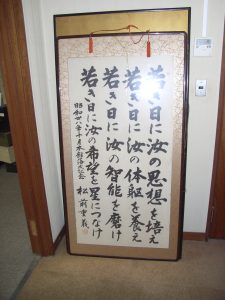 若き日に汝の思想を培え
若き日に汝の体躯を養え
若き日に汝の智能を磨け
若き日に汝の希望を星につなげ
昭和廿八年十月
松前重義